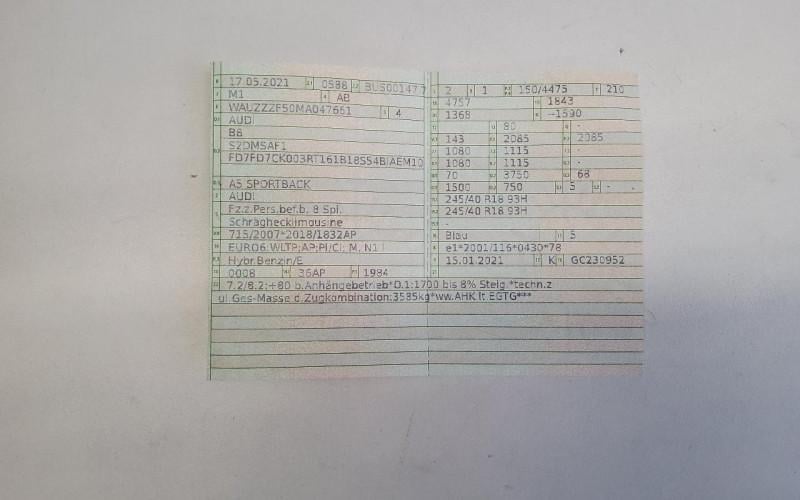 17.05.2021 0588 BUS001477
M1 AB
WAUZZZF50MA047661 4
AUDI
B8
S2DMSAF1
FD7FD7CK003RT161B18S54BIAEM10
-
A5 SPORTBACK
AUDI
Fz.z.Pers.bef.b. 8 Spl.
Schräghecklimousine
715/2007*2018/1832AP
EURO6;WLTP;AP;PI/CI; M, N1 I
Hybr.Benzin/E
0008 36AP 1984
2 1 150/4475 210
4757 1843
1368 -1590
80 -
143 2085 2085
1080 1115 -
1080 1115 -
70 3750 68
1500 750 5 - -
245/40 R18 93H
245/40 R18 93H
-
Blau 5
e1*2001/116*0430*78
15.01.2021 K GC230952
7.2/8.2:+80 b.Anhängebetrieb*O.1:1700 bis 8% Steig.*techn.z
ul Ges-Masse d.Zugkombination:3585kg*ww.AHK lt.EGTG***